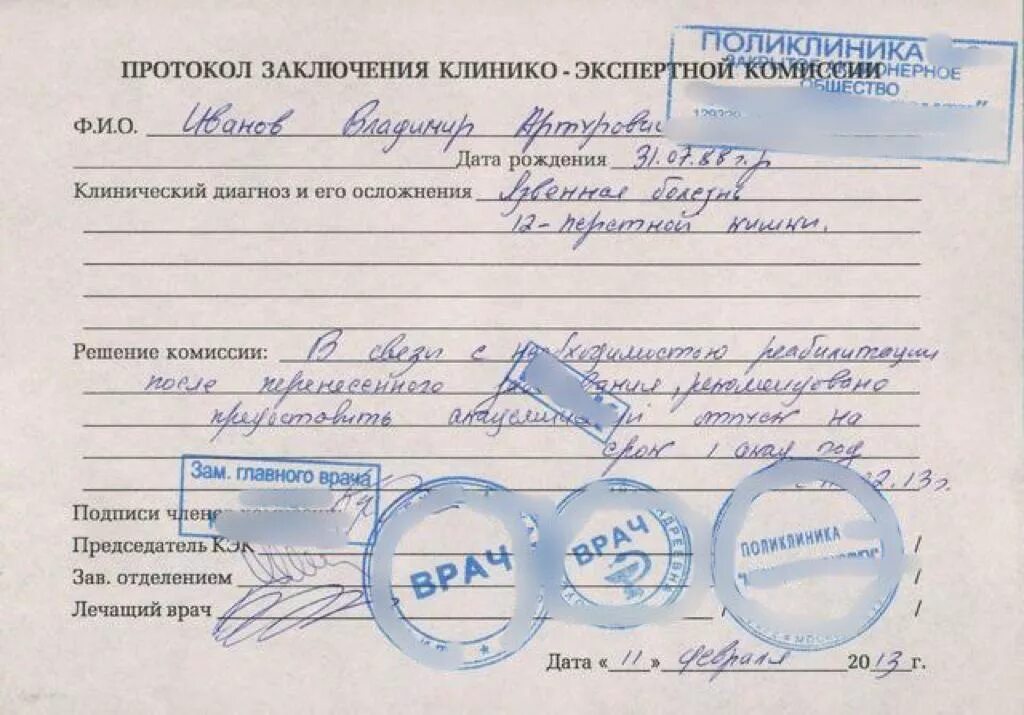 ПОЛИКЛИНИКА
ЗАКРЫТОЕ АКЦИОНЕРНОЕ
ОБЩЕСТВО
129329
ПРОТОКОЛ ЗАКЛЮЧЕНИЯ КЛИНИКО - ЭКСПЕРТНОЙ КОМИССИИ
Ф.И.О. Иванов Владимир Артурович
Дата рождения 31.07.88 г.р
Клинический диагноз и его осложнения Язвенная болезнь
12-перстной кишки.
Решение комиссии: В связи с необходимостью реабилитации
после перенесенного , рекомендовано
предоставить академический отпуск на
срок 1 акад год
2.13г.
Зам. главного врача
Подписи членов
Председатель КЭК /
Зав. отделением /
Лечащий врач / /
ВРАЧ
ВРАЧ
ПОЛИКЛИНИКА
Дата « 11 » февраля 2013 г.